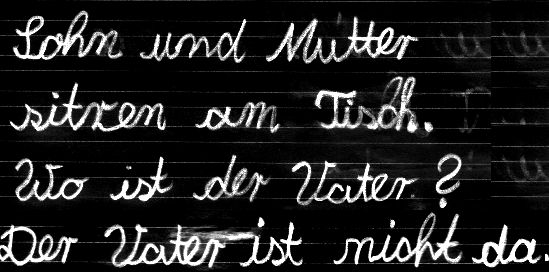 Sohn und Mutter
sitzen am Tisch.
Wo ist der Vater?
Der Vater ist nicht da.